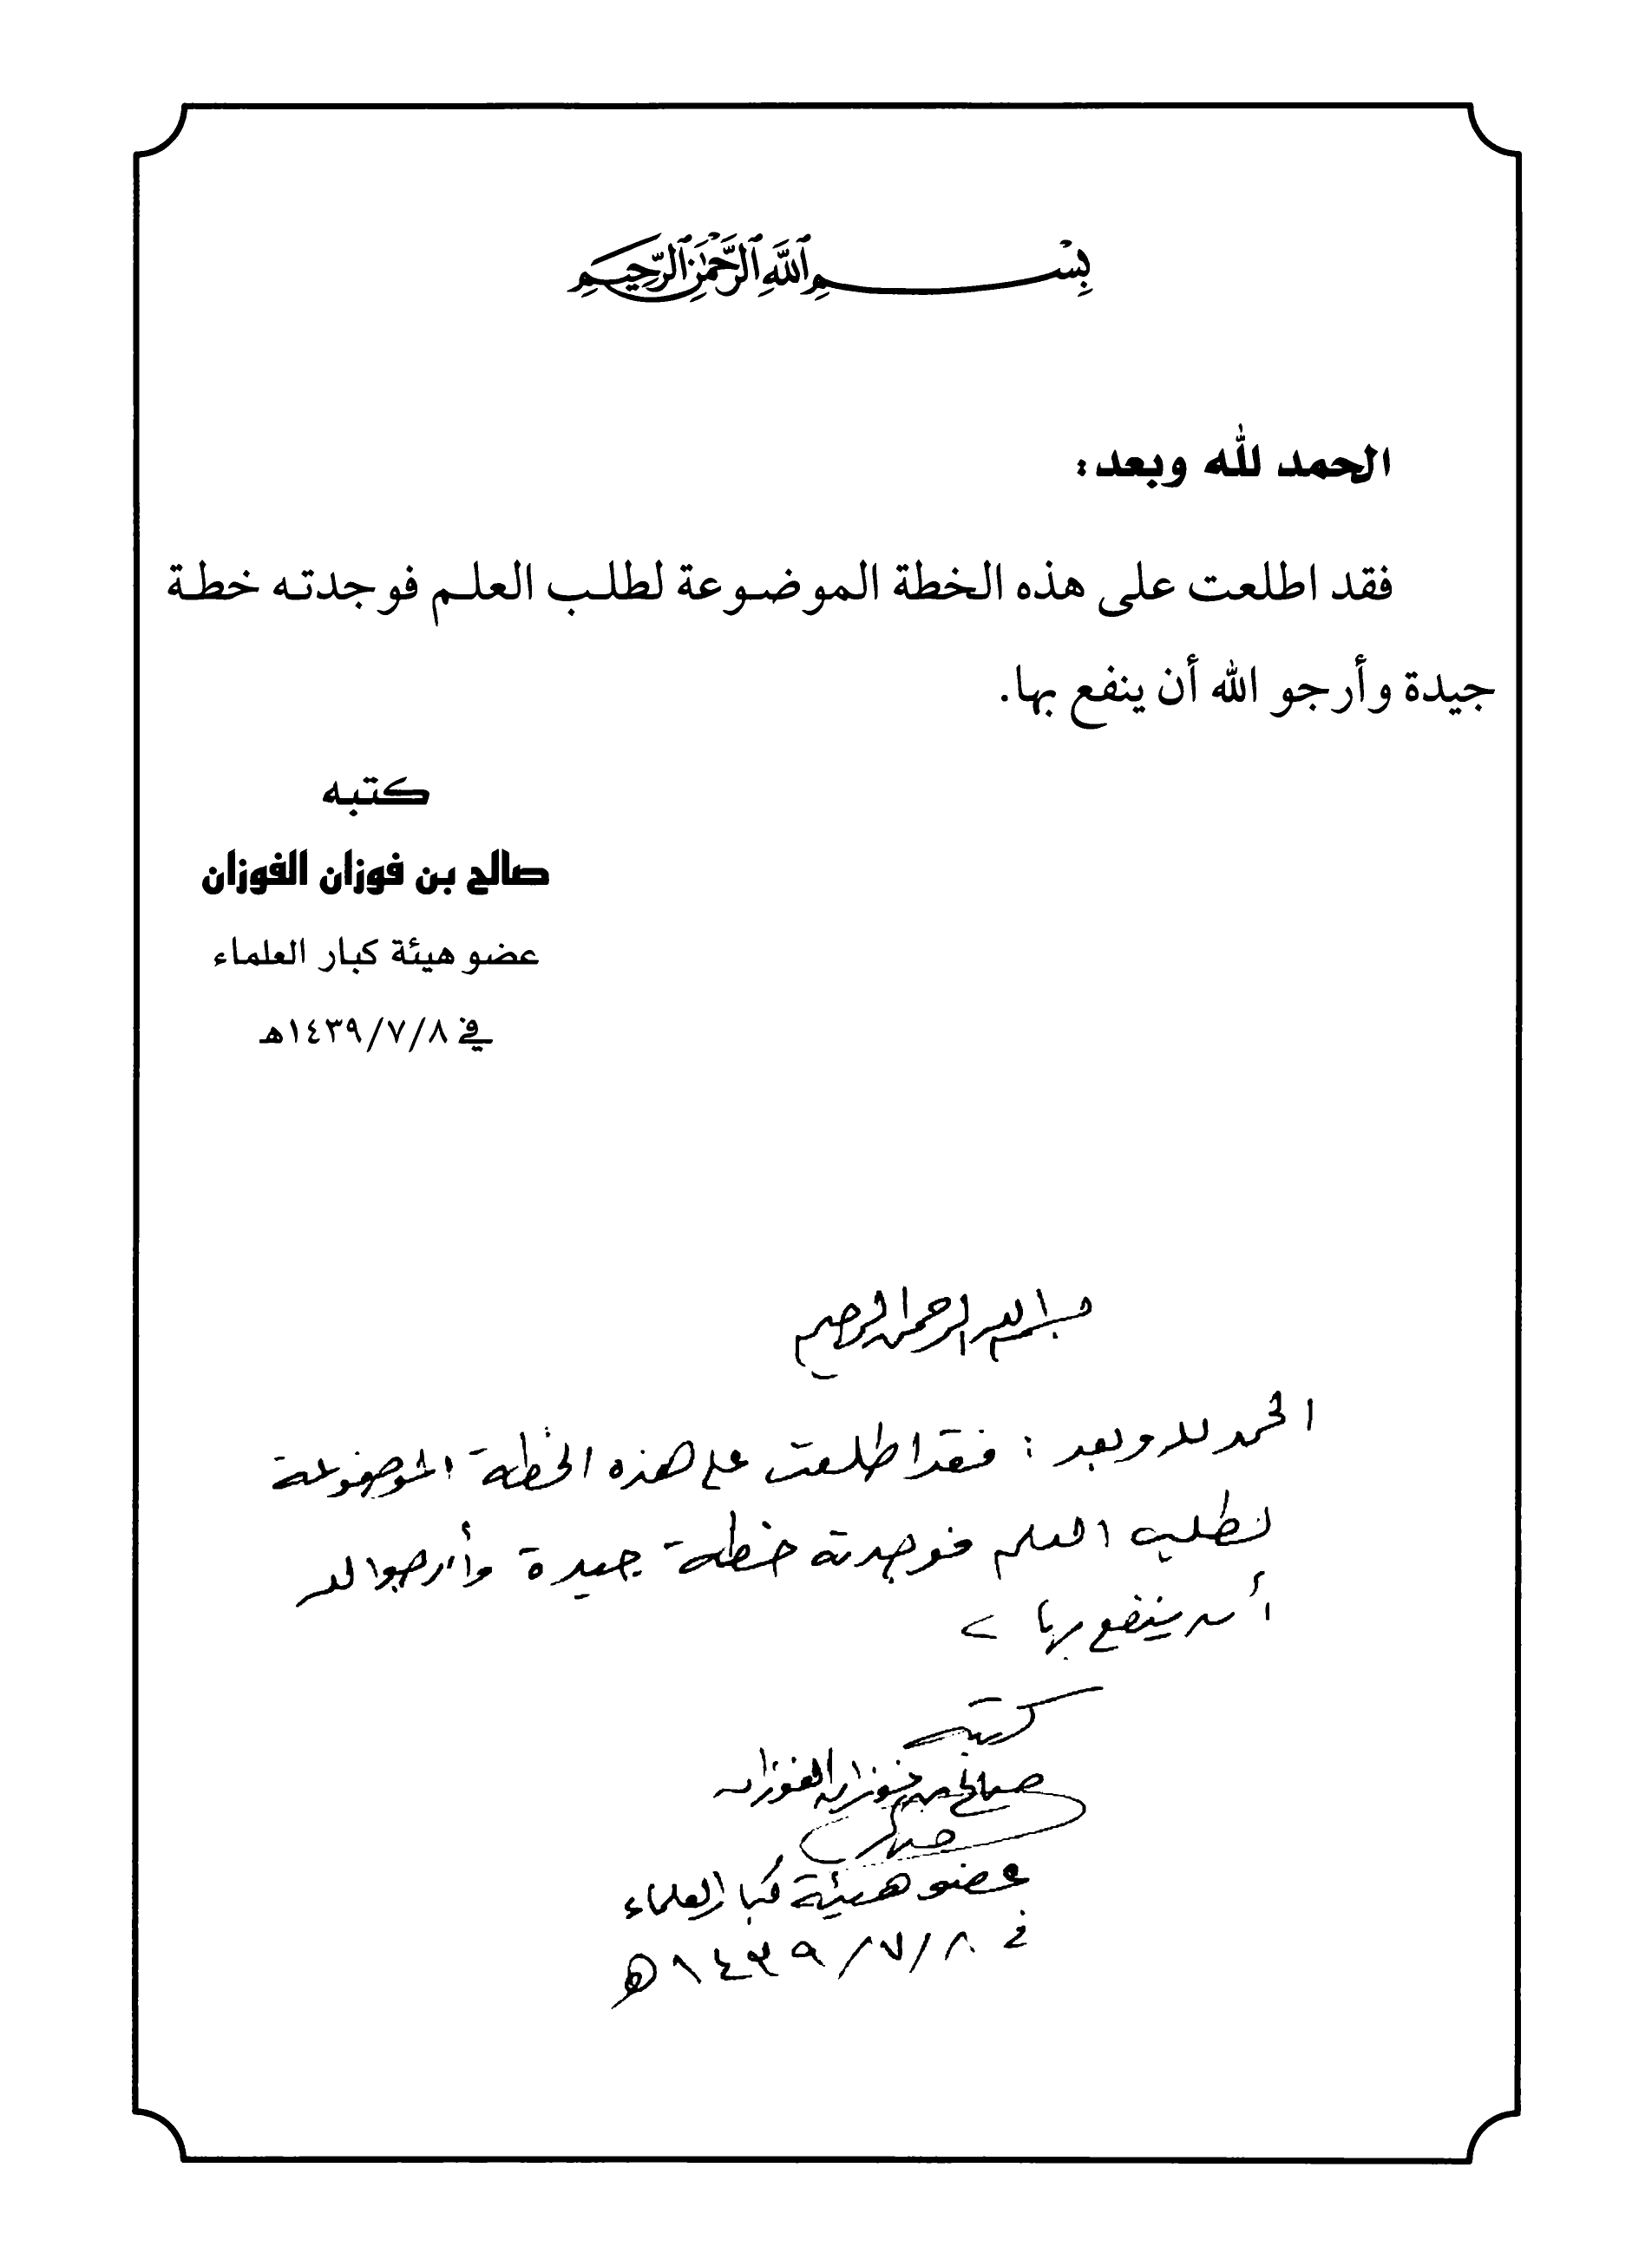 بِسْمِ ٱللَّهِ ٱلرَّحْمَٰنِ ٱلرَّحِيمِ
الحمد لله وبعد:
فقد اطلعت على هذه الخطة الموضوعة لطلب العلم فوجدته خطة
جيدة وأرجو الله أن ينفع بها.
كتبه
صالح بن فوزان الفوزان
عضو هيئة كبار العلماء
في ١٤٣٩/٧/٨هـ
بسم الله الرحمن الرحيم
الحمد لله وبعد : فقد اطلعت على هذه الخطة الموضوعة
لطلب العلم فوجدته خطة جيدة وأرجو الله
أن ينفع بها
كتبه
صالح بن فوزان الفوزان
عضو هيئة كبار العلماء
في ١٤٣٩/٧/٨هـ